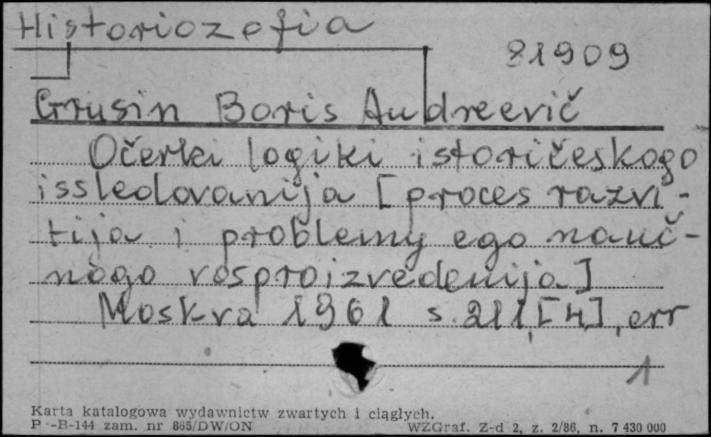 Historiozofia
81909
Grusin Boris Andreevič
Očerki logiki istoričeskogo
issledovanija [proces razvi-
tija i problemy ego nauč-
nogo vosproizvedenija]
Moskva 1961 s. 211, [4], err
1
Karta katalogowa wydawnictw zwartych i ciągłych.
P-B-144 zam. nr 865/DW/ON WZGraf. Z-d 2, z. 2/86, n. 7 430 000